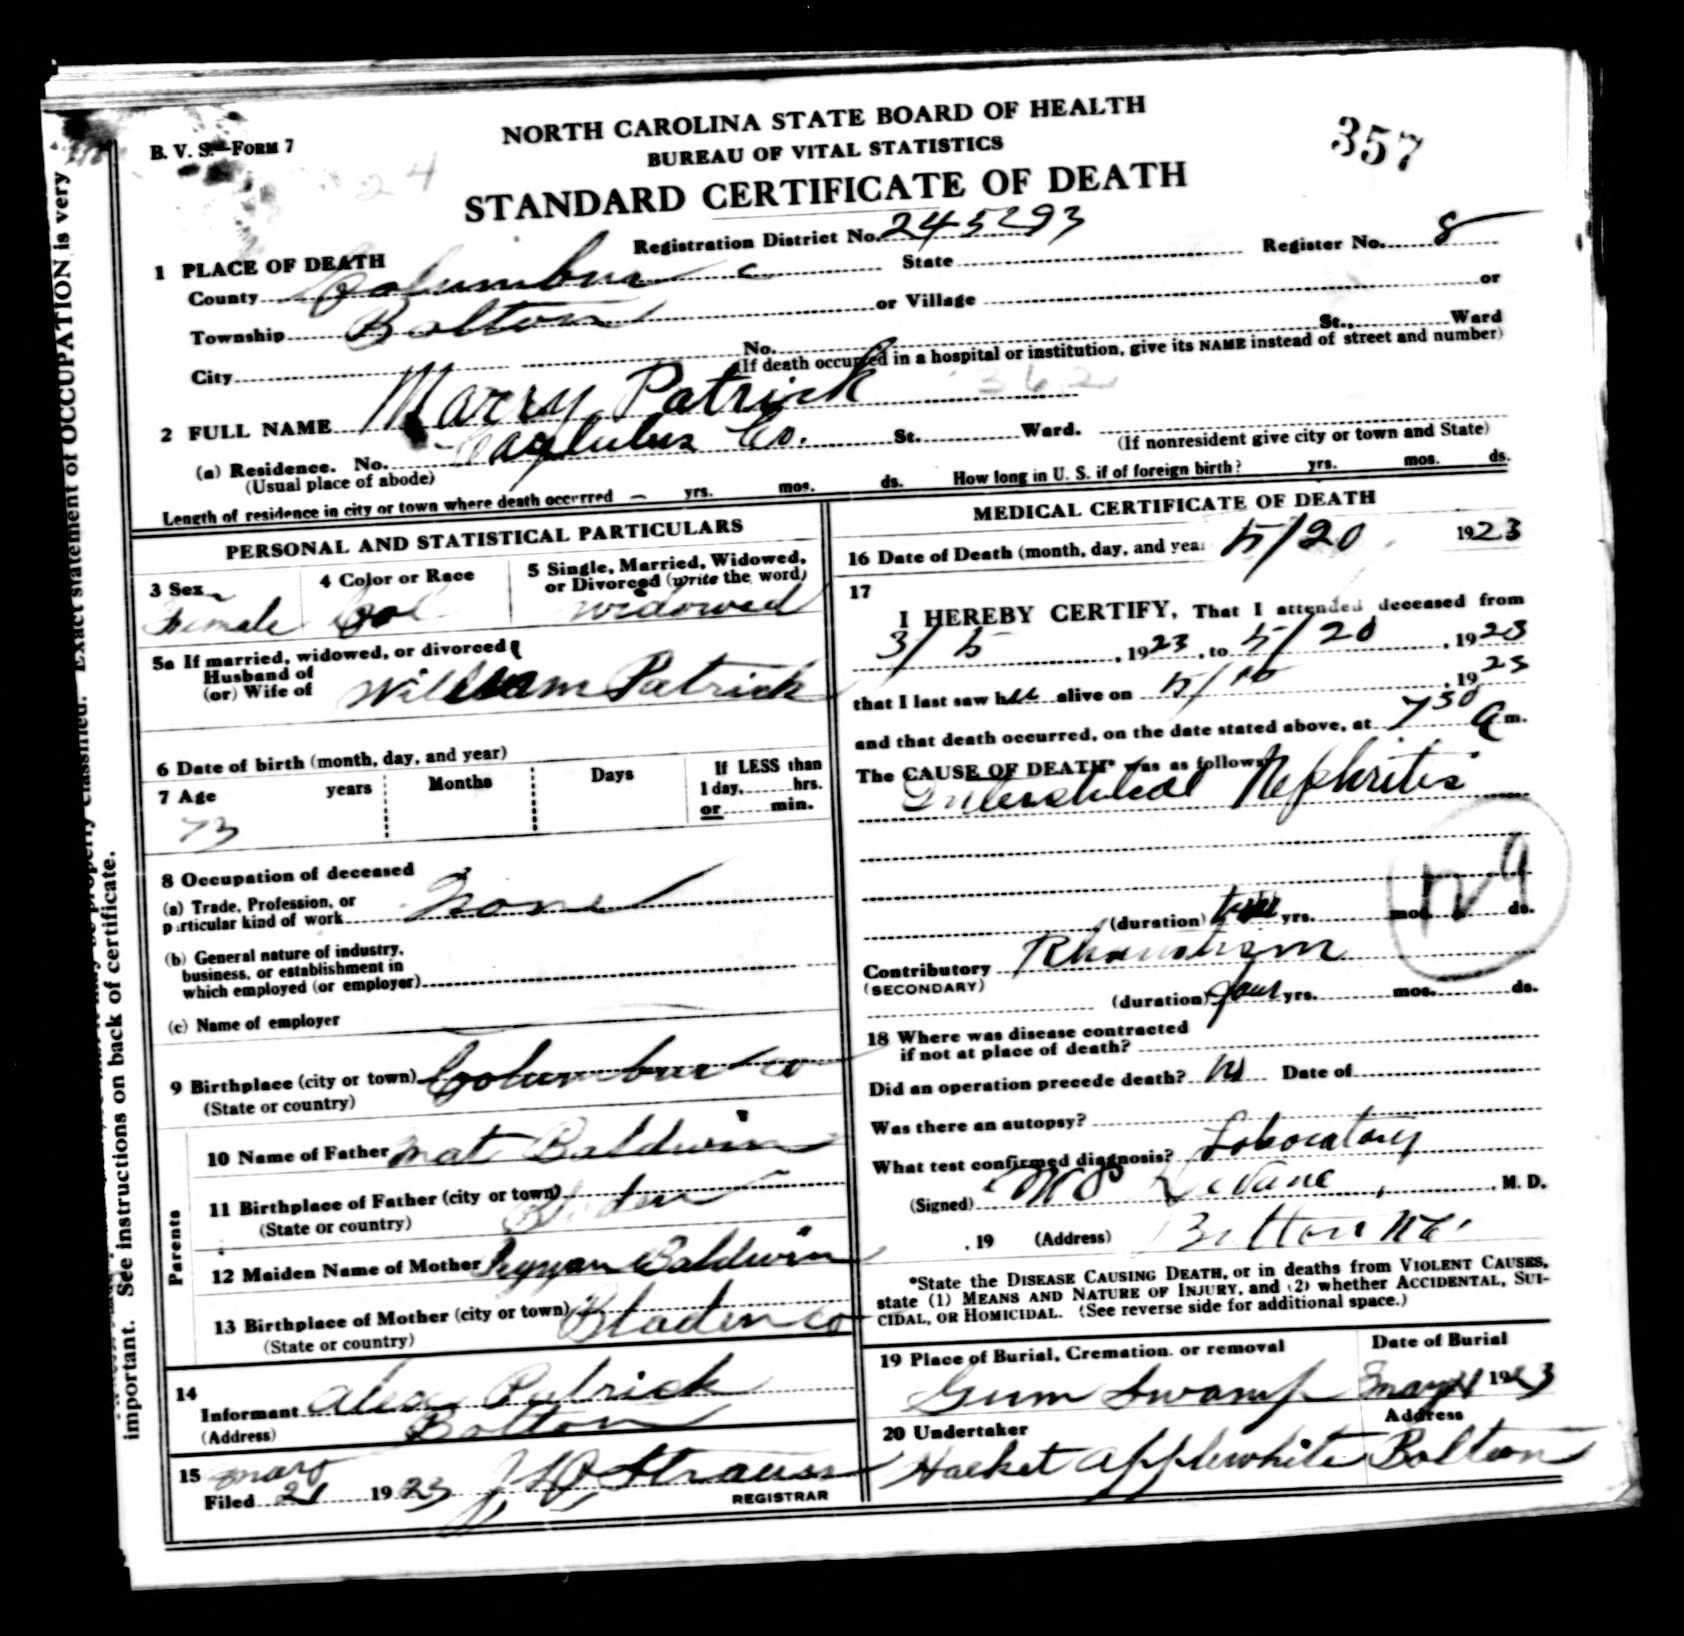 357
NORTH CAROLINA STATE BOARD OF HEALTH
BUREAU OF VITAL STATISTICS
STANDARD CERTIFICATE OF DEATH
B. V. S.—FORM 7
24
Registration District No. 245293 Register No. 8
1 PLACE OF DEATH
County Columbus State
Township Bolton or Village or
City No. St., Ward
(If death occurred in a hospital or institution, give its NAME instead of street and number)
362
2 FULL NAME Marry Patrick
(a) Residence. No. Co. St. Ward.
(Usual place of abode) (If nonresident give city or town and State)
Length of residence in city or town where death occurred yrs. mos. ds. How long in U. S. if of foreign birth? yrs. mos. ds.
PERSONAL AND STATISTICAL PARTICULARS
3 Sex 4 Color or Race 5 Single, Married, Widowed, or Divorced (write the word)
Female Col widowed
5a If married, widowed, or divorced
Husband of
(or) Wife of William Patrick
6 Date of birth (month, day, and year)
7 Age years Months Days If LESS than
1 day, hrs.
or min.
73
8 Occupation of deceased
(a) Trade, Profession, or
particular kind of work None
(b) General nature of industry,
business, or establishment in
which employed (or employer)
(c) Name of employer
9 Birthplace (city or town) Columbus co
(State or country)
Parents
10 Name of Father Mat Baldwin
11 Birthplace of Father (city or town) Bladen
(State or country)
12 Maiden Name of Mother Baldwin
13 Birthplace of Mother (city or town) Bladen co
(State or country)
14
Informant Alex Patrick
(Address) Bolton
15
Filed 21 1923 Strauss
REGISTRAR
MEDICAL CERTIFICATE OF DEATH
16 Date of Death (month, day, and year 5/20 1923
17
I HEREBY CERTIFY, That I attended deceased from
3/5, 1923, to 5/20, 1923
that I last saw her alive on 5/10, 1923
and that death occurred, on the date stated above, at 7 30 a m.
The CAUSE OF DEATH* was as follows:
Interstitial Nephritis
129
(duration) two yrs. mos. ds.
Contributory Rheumatism
(SECONDARY)
(duration) four yrs. mos. ds.
18 Where was disease contracted
if not at place of death?
Did an operation precede death? No Date of
Was there an autopsy?
What test confirmed diagnosis? Laboratory
(Signed) DeVane, M. D.
, 19 (Address) Bolton N.C.
*State the DISEASE CAUSING DEATH, or in deaths from VIOLENT CAUSES,
state (1) MEANS AND NATURE OF INJURY, and (2) whether ACCIDENTAL, SUI-
CIDAL, OR HOMICIDAL. (See reverse side for additional space.)
19 Place of Burial, Cremation. or removal Date of Burial
Gum Swamp May 21 1923
20 Undertaker Address
Hacket Applewhite Bolton
Exact statement of OCCUPATION is very
important. See instructions on back of certificate.